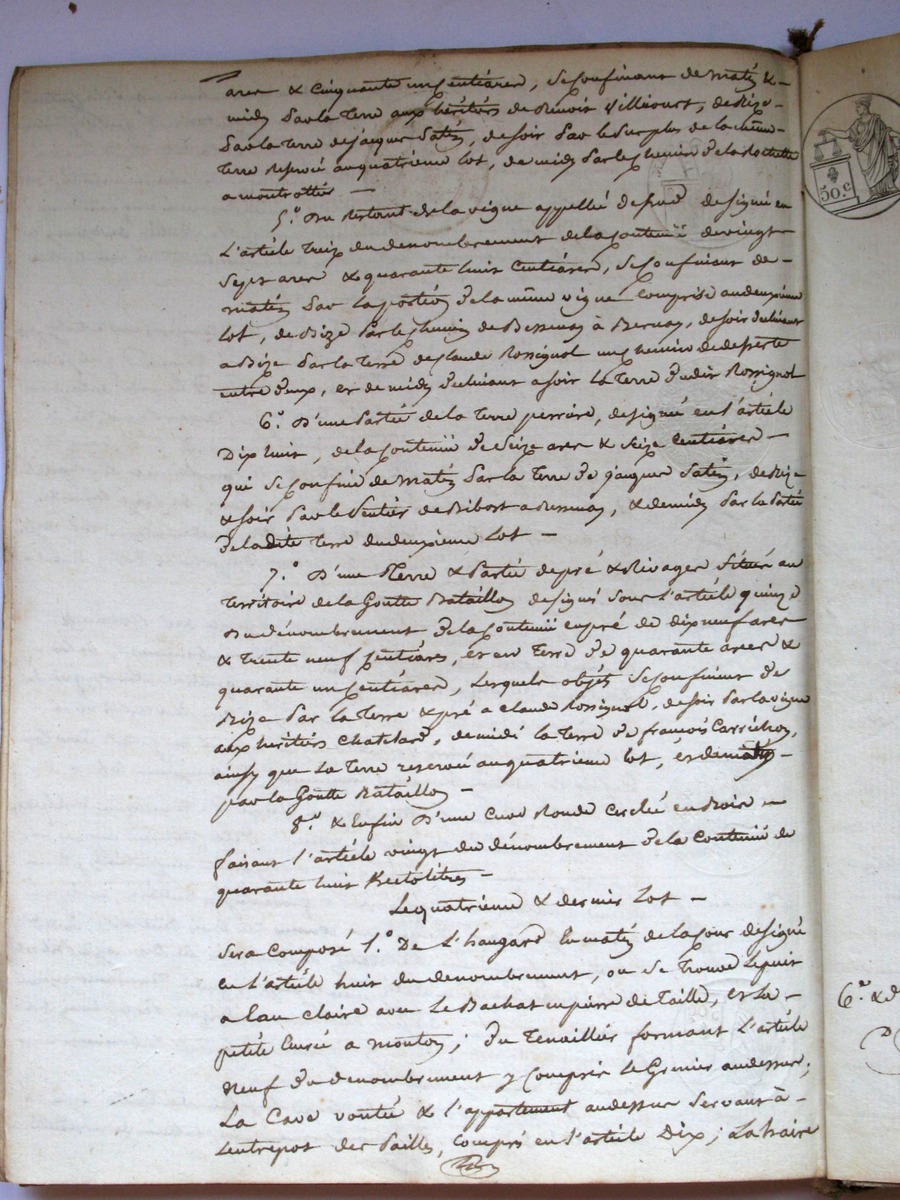 ares & cinquante un centiares, se confinant de matin &
midy par la terre aux héritiers de Benoit Villecourt, de Bize
par la terre de jacques Satin, de soir par le surplus de la même
terre reservé au quatrieme lot, de midy par le chemin de la Rochette
a montrottier
5.° Du restant de la vigne appellée designé en
L'article treize du denombrement de la contenüe de vingt
sept ares & quarante huit Centiares, se confinant de
matin par la portion de la même vigne comprise au deuxieme
lot, de Bize par le chemin de Bessenay à Bernay, de soir declinant
a Bize par la terre de claude Rossignol un chemin de desserte
entre deux, et de midy declinant a soir la terre dudit Rossignol
6.° D'une Partie de la terre perriere, designé en l'article
Dix huit, de la contenüe de seize ares & seize Centiares
qui se confine de matin par la terre de jacques Satin, de Bize
& soir par le sentier de Ribost a Bessenay, & de midy par la partie
de la dite terre du deuxieme lot
7.° D'une Terre & Partie de pré & Rivages situés au
territoire de la Goutte Bataillon designés sous l'article quinze
Du dénombrement de la contenüe en pré de dix neuf ares
& trente neuf centiares, et en terre de quarante ares &
quarante un centiares, lesquels objets se confinent de
Bize par la terre & pré a claude Rossignol, de soir par la vigne
aux heritiers Chatelard, de midi la terre de françois Carrichon,
ainsy que la terre reservé au quatrieme lot, et de matin
par la Goutte Bataillon
8.° & Enfin D'une Cuve Ronde Cerclée en Bois
faisant l'article vingt du dénombrement de la contenüe de
quarante huit hectolitres
Le quatrieme & dernier Lot
Sera Composé 1.° De L'haugard en matin de la cour designé
en l'article huit du denombrement, ou se trouve le puit
a Eau claire avec le Bachat en pierre de Taille, et la
petite Ecurie a mouton; du Tenaillier formant l'article
neuf du denombrement y compris le Grenier au dessus;
La Cave voutée & l'appartement au dessus servant à
Lentrepot des Pailles, compris en l'article Dix; La haire
50.c
6.° & d